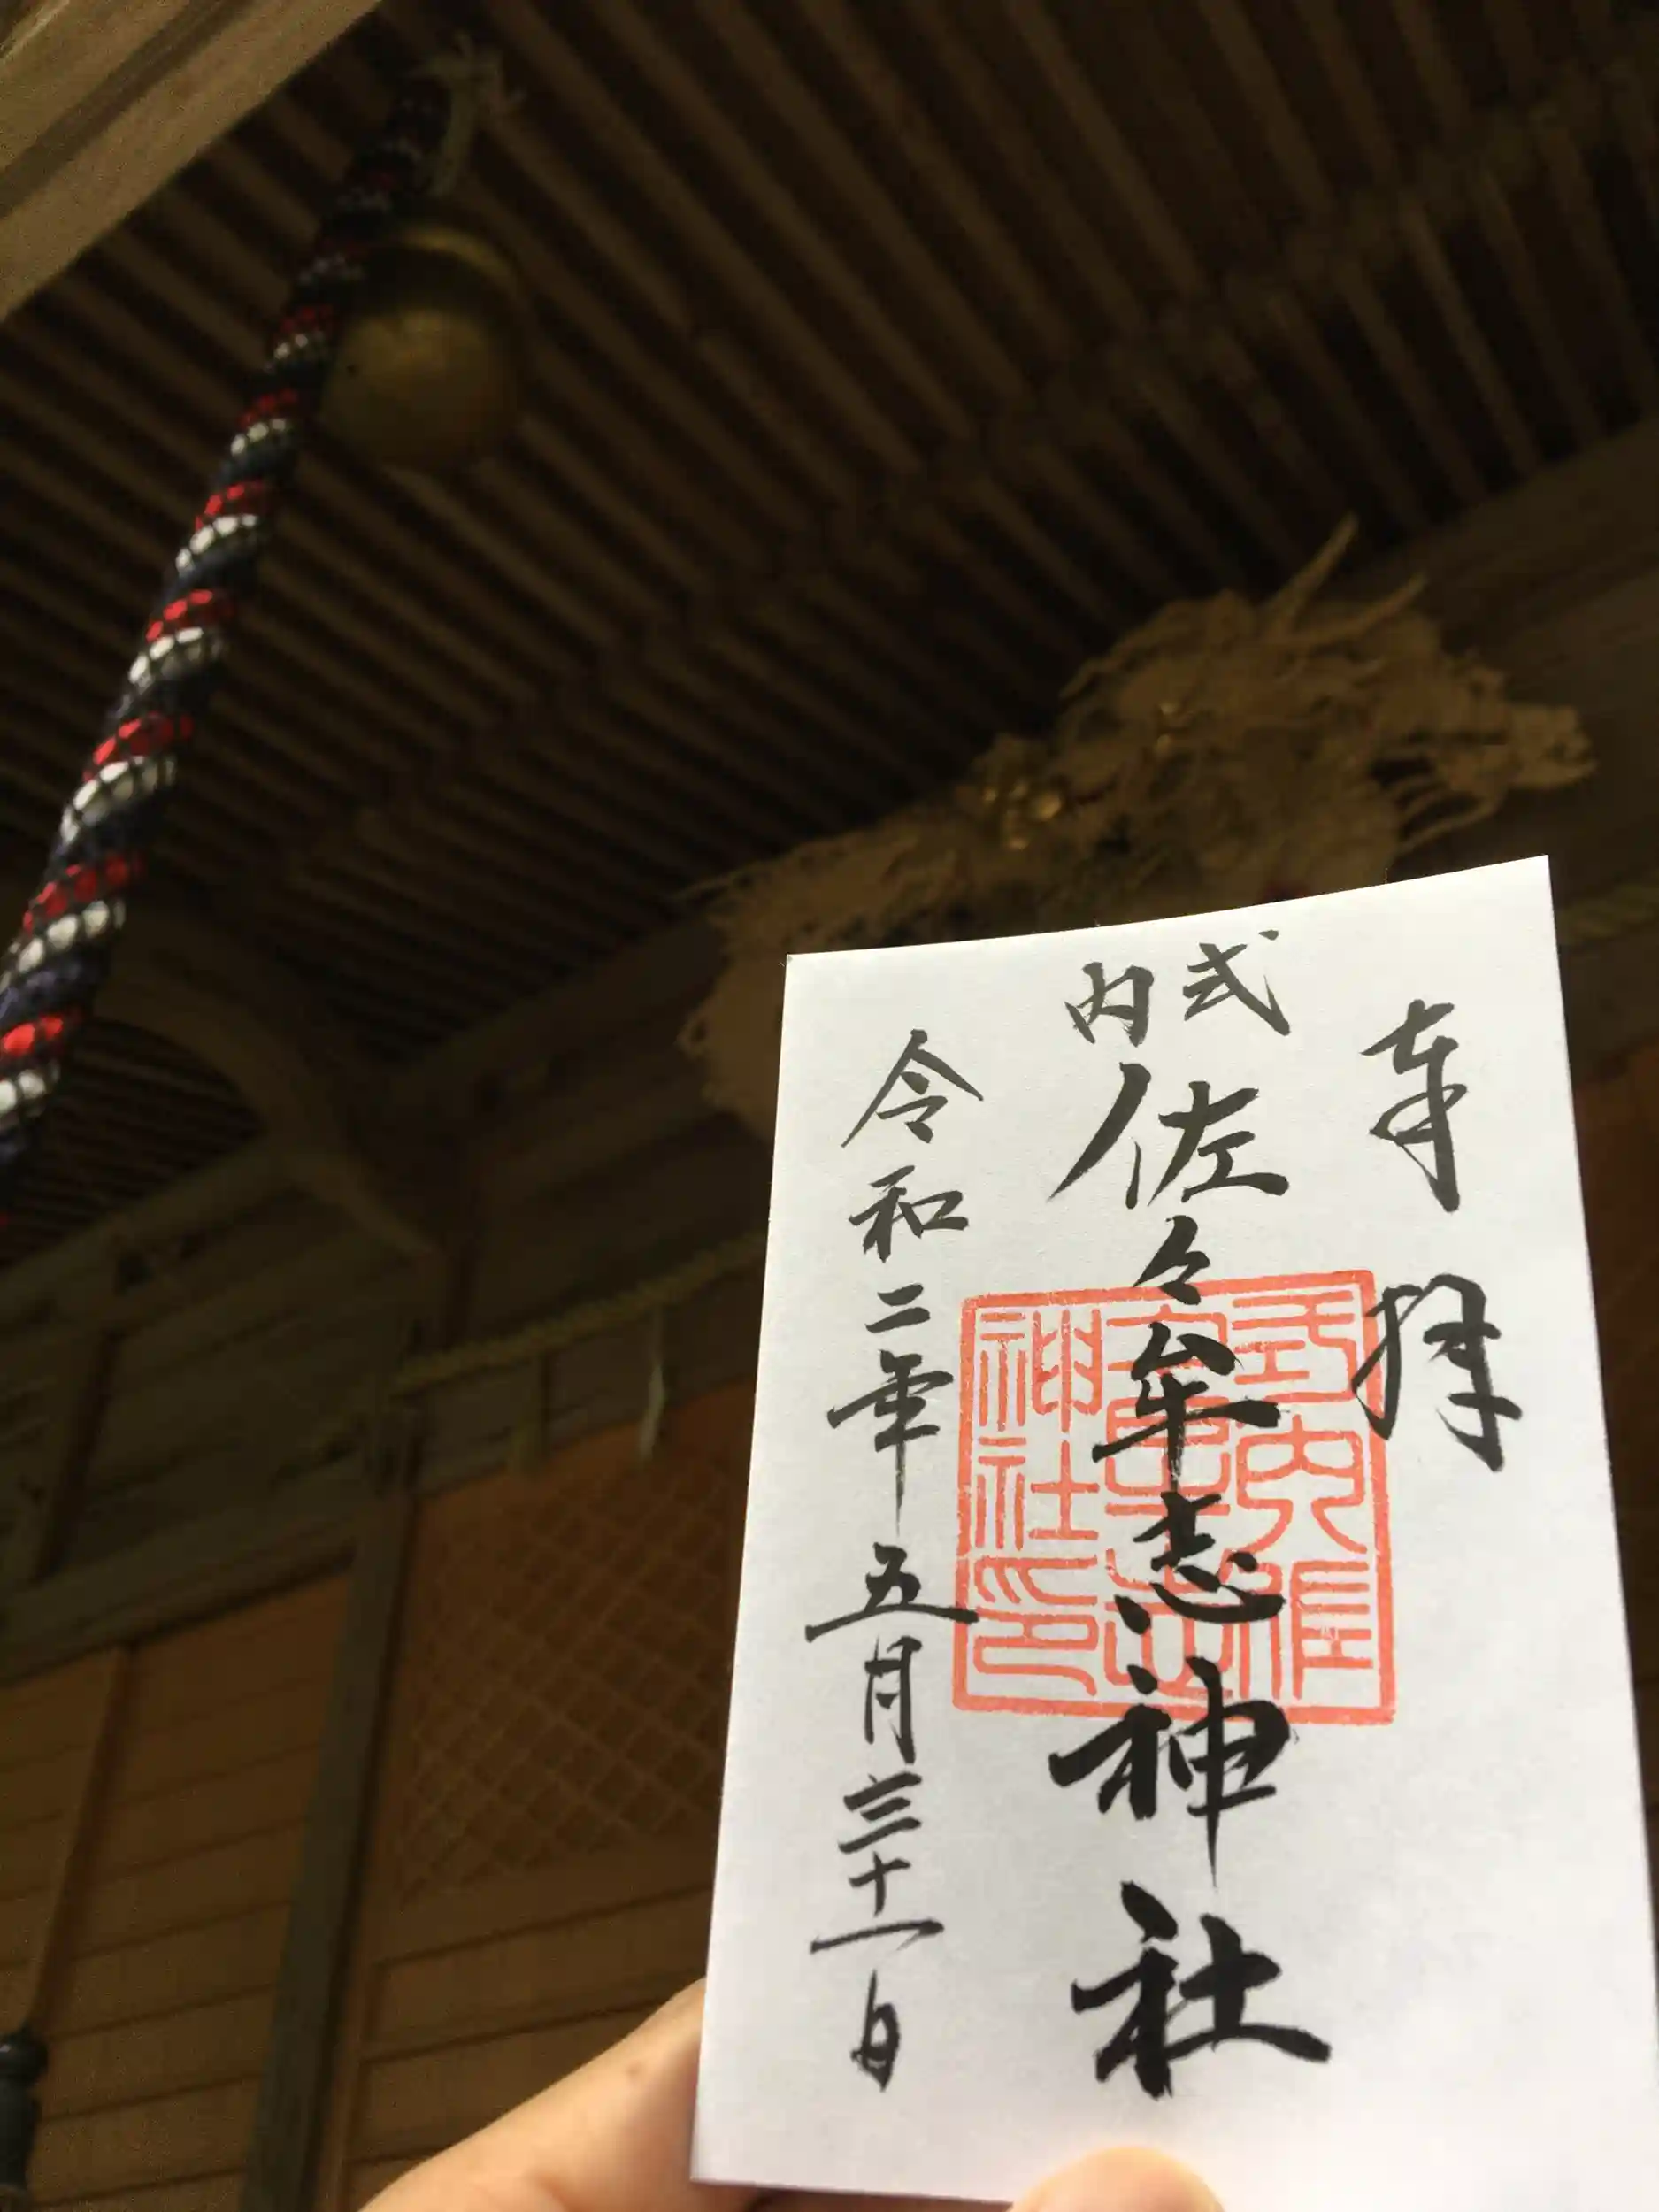 奉拝
式内
佐々牟志神社
令和二年五月三十一日
式内
神社印